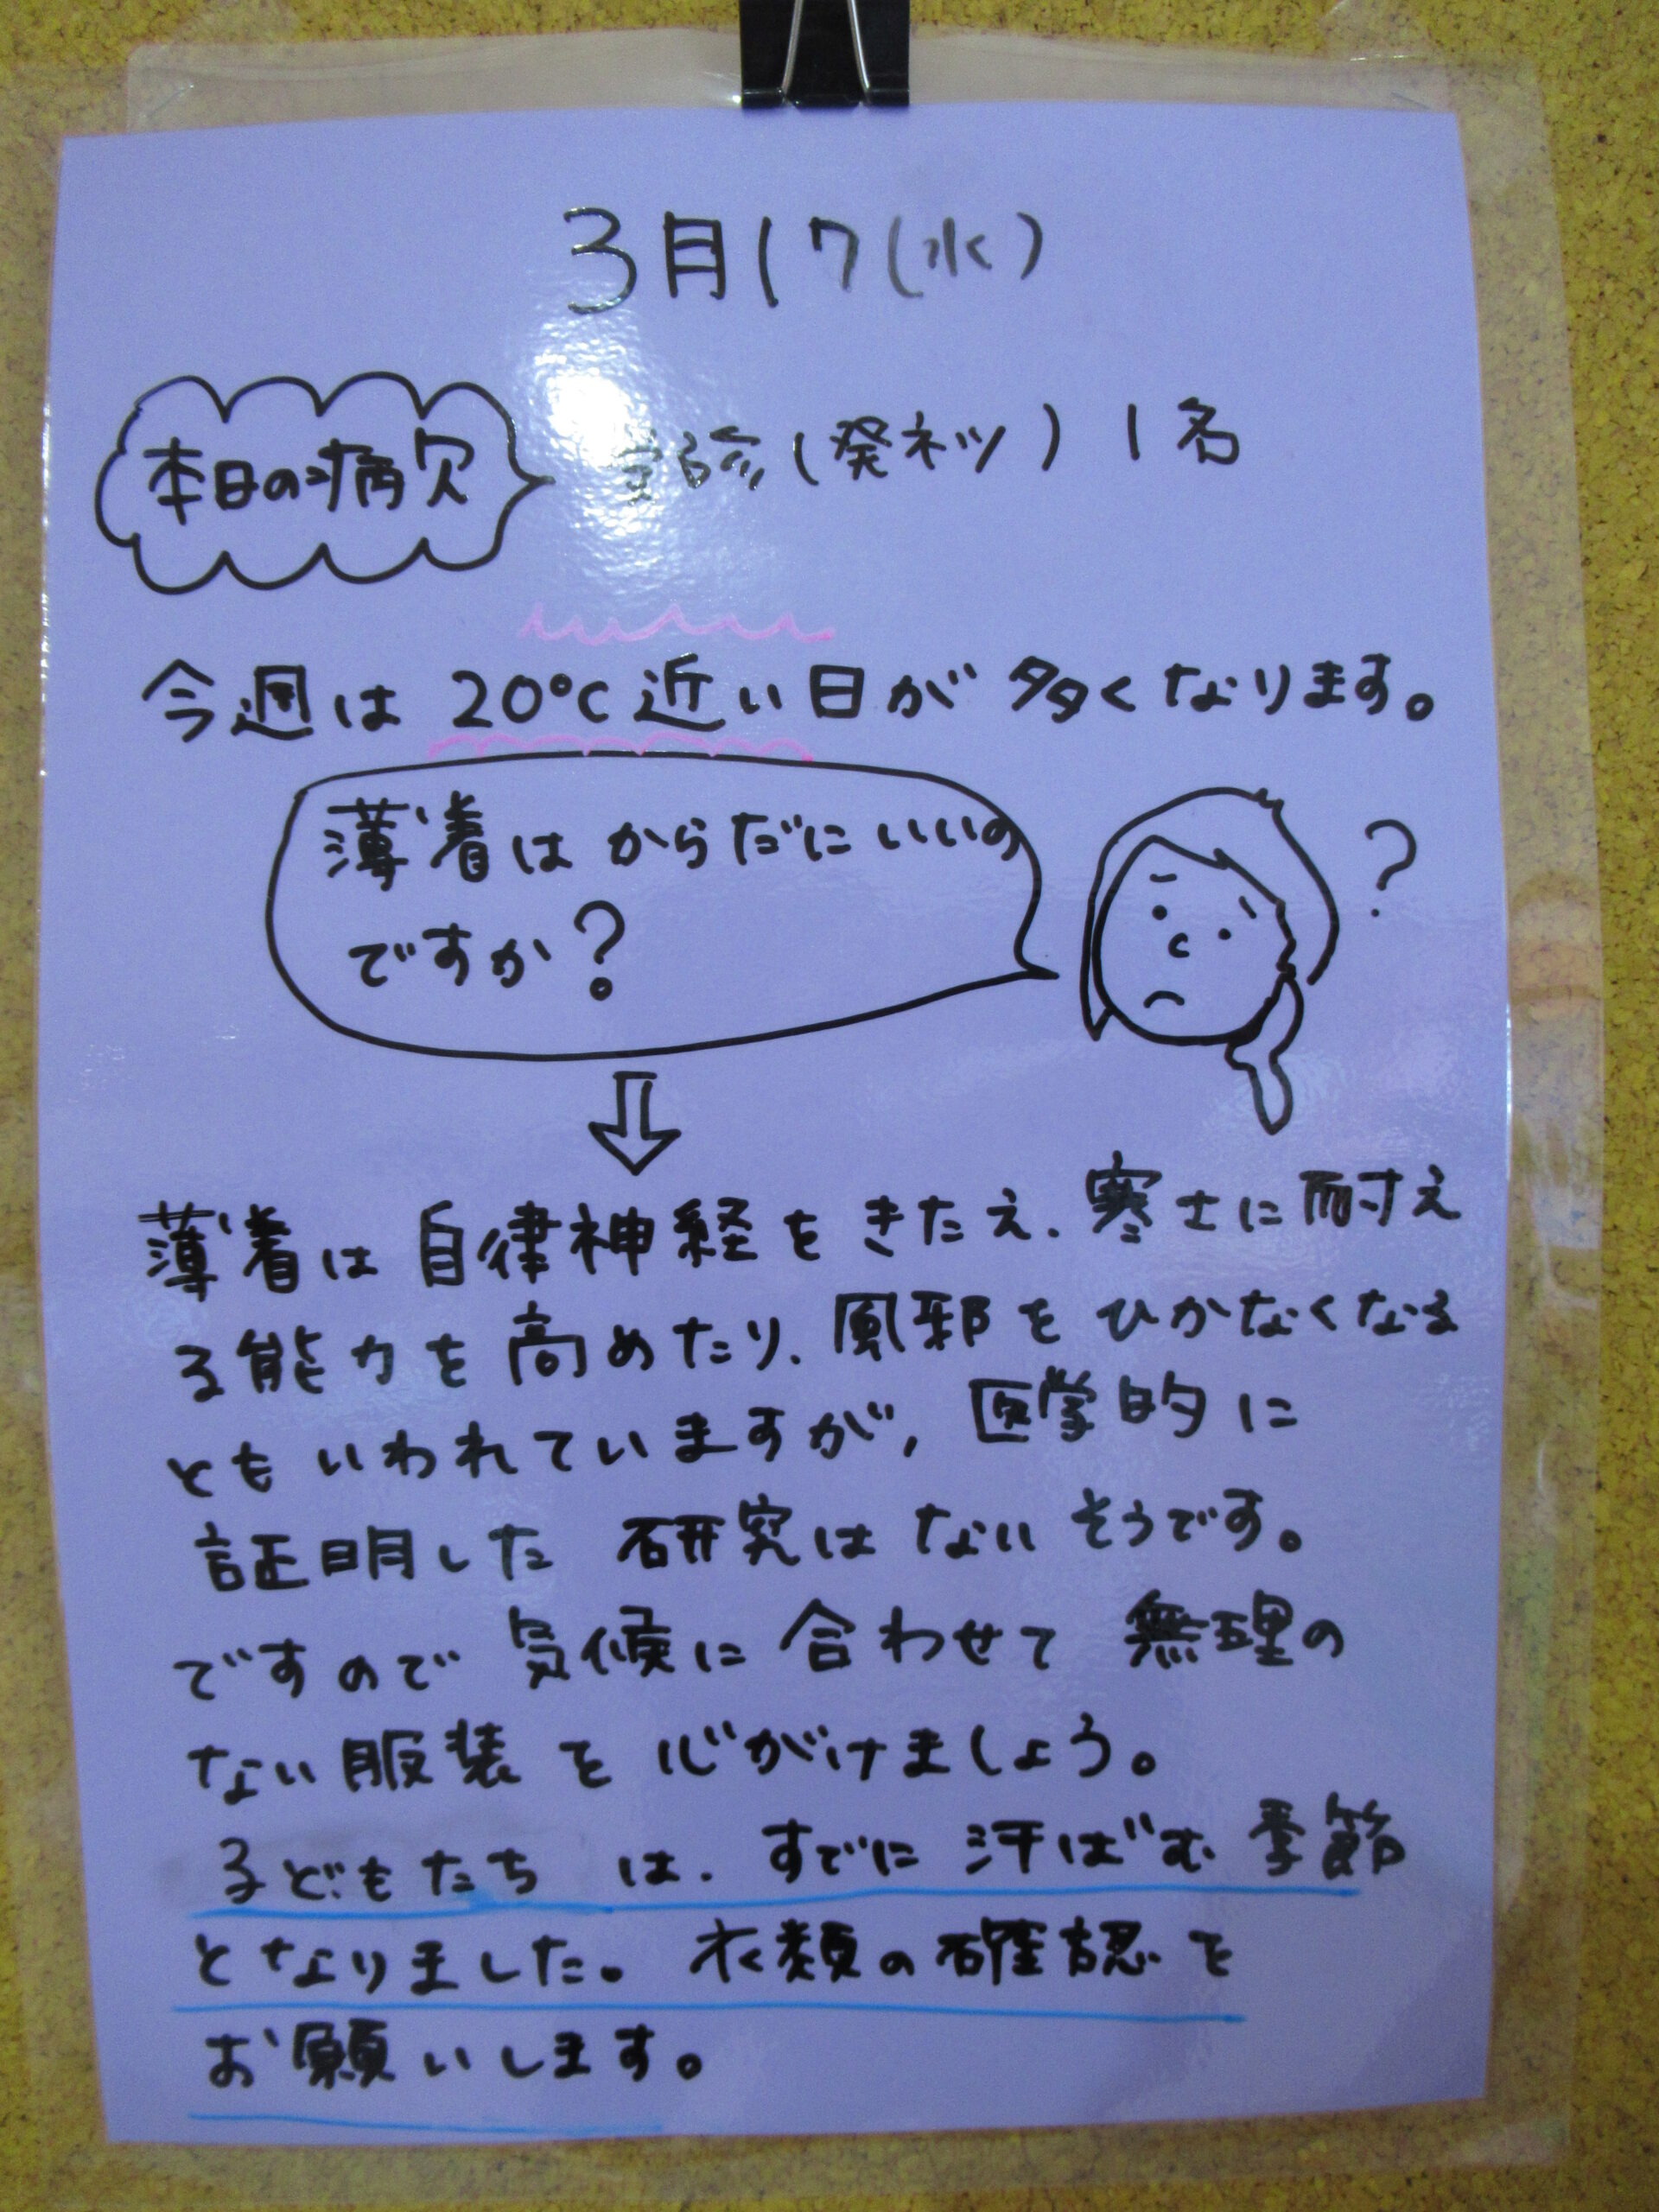 3月17(水)
本日の病欠
受診(発ネツ) 1名
今週は 20℃近い日が多くなります。
薄着はからだにいいの
ですか？
?
薄着は自律神経をきたえ、寒さに耐え
る能力を高めたり、風邪をひかなくなる
ともいわれていますが、医学的に
証明した研究はないそうです。
ですので気候に合わせて無理の
ない服装を心がけましょう。
子どもたちは、すでに汗ばむ季節
となりました。衣類の確認を
お願いします。